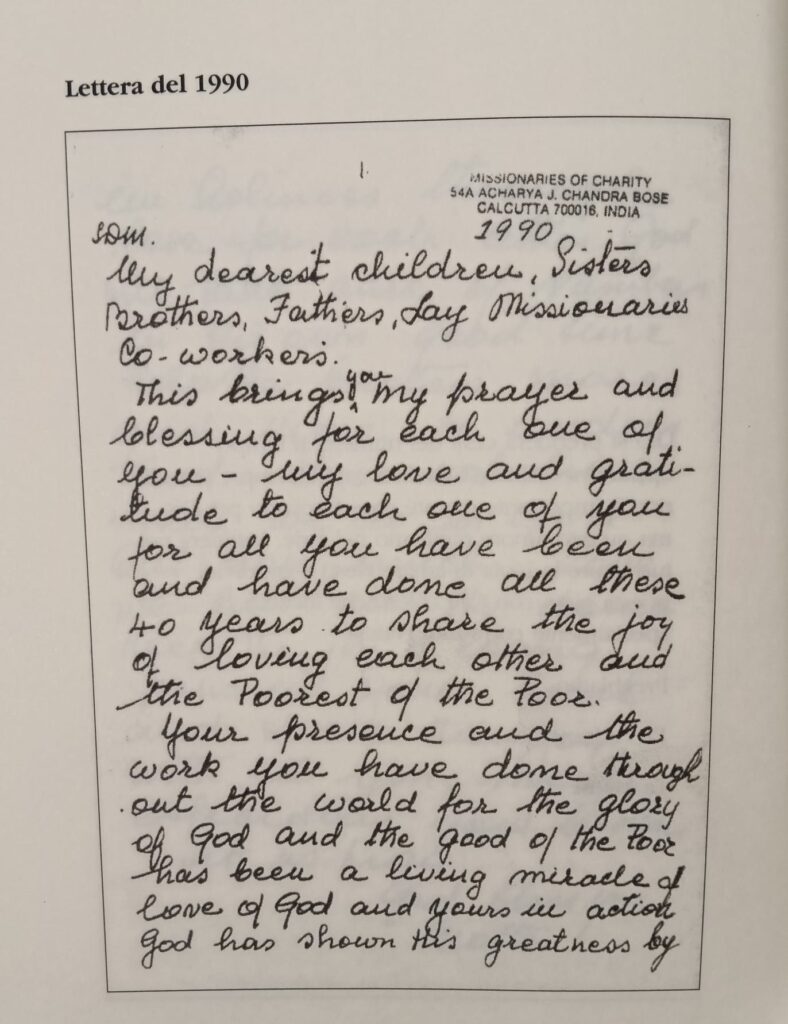 Lettera del 1990
1.
MISSIONARIES OF CHARITY
54A ACHARYA J. CHANDRA BOSE
CALCUTTA 700016, INDIA
1990
LDM.
My dearest children, Sisters
Brothers, Fathers, Lay Missionaries
Co-workers.
This brings you my prayer and
blessing for each one of
you - my love and grati-
tude to each one of you
for all you have been
and have done all these
40 years to share the joy
of loving each other and
the Poorest of the Poor.
Your presence and the
work you have done through
out the world for the glory
of God and the good of the Poor
has been a living miracle of
love of God and yours in action
God has shown His greatness by